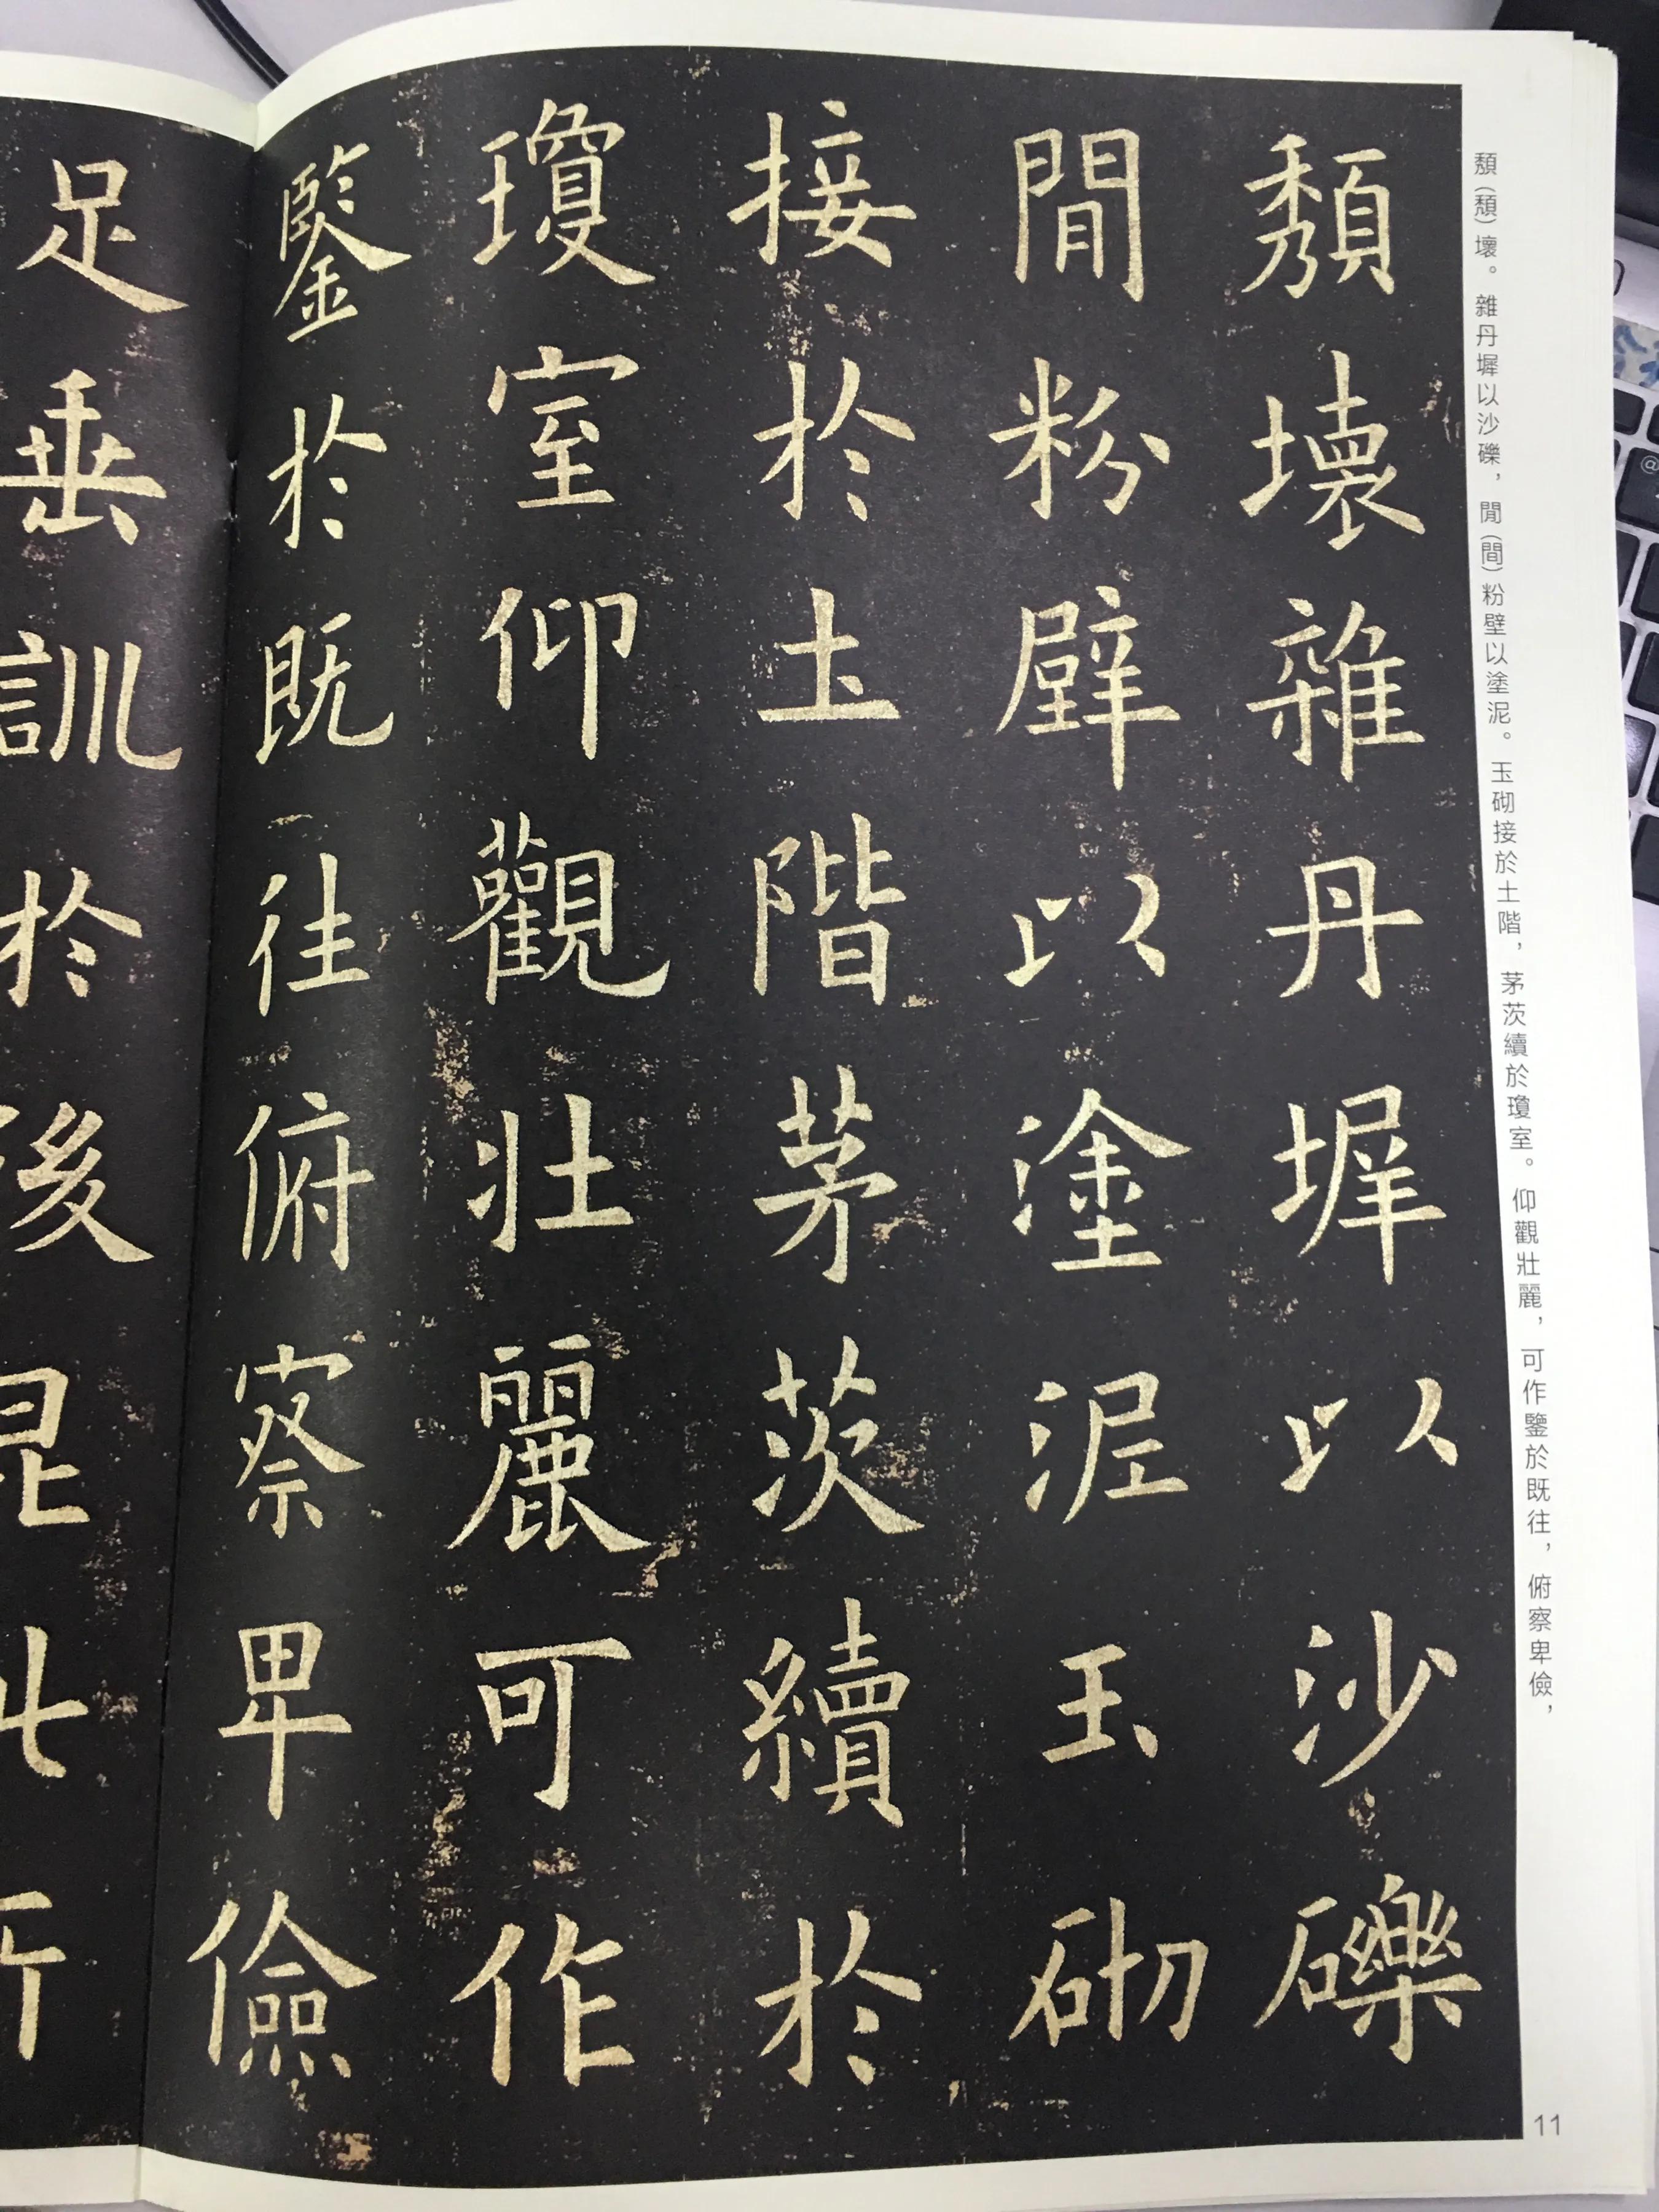 頹(頽)壞。雜丹墀以沙礫，閒(間)粉壁以塗泥。玉砌接於土階，茅茨續於瓊室。仰觀壯麗，可作鑒於既往，俯察卑儉，
頹壞雜丹墀以沙礫
閒粉壁以塗泥玉砌
接於土階茅茨續於
瓊室仰觀壯麗可作
鑒於既往俯察卑儉
足垂訓於後昆此所
11